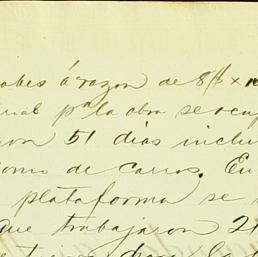 abes á razon de 8 ff x
rial pa la obra se ocup
ron 51 dias inclu
iomo de carros. En
plataforma se
que trabajaron 2